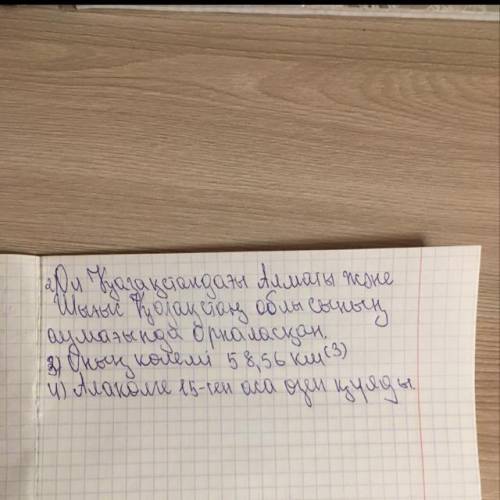 2) Ол Қазақстандағы Алматы және
Шығыс Қазақстан облысының
аумағында орналасқан.
3) Оның көлемі 58,56 км(3)
4) Алакөлге 15-тен аса өзен құяды